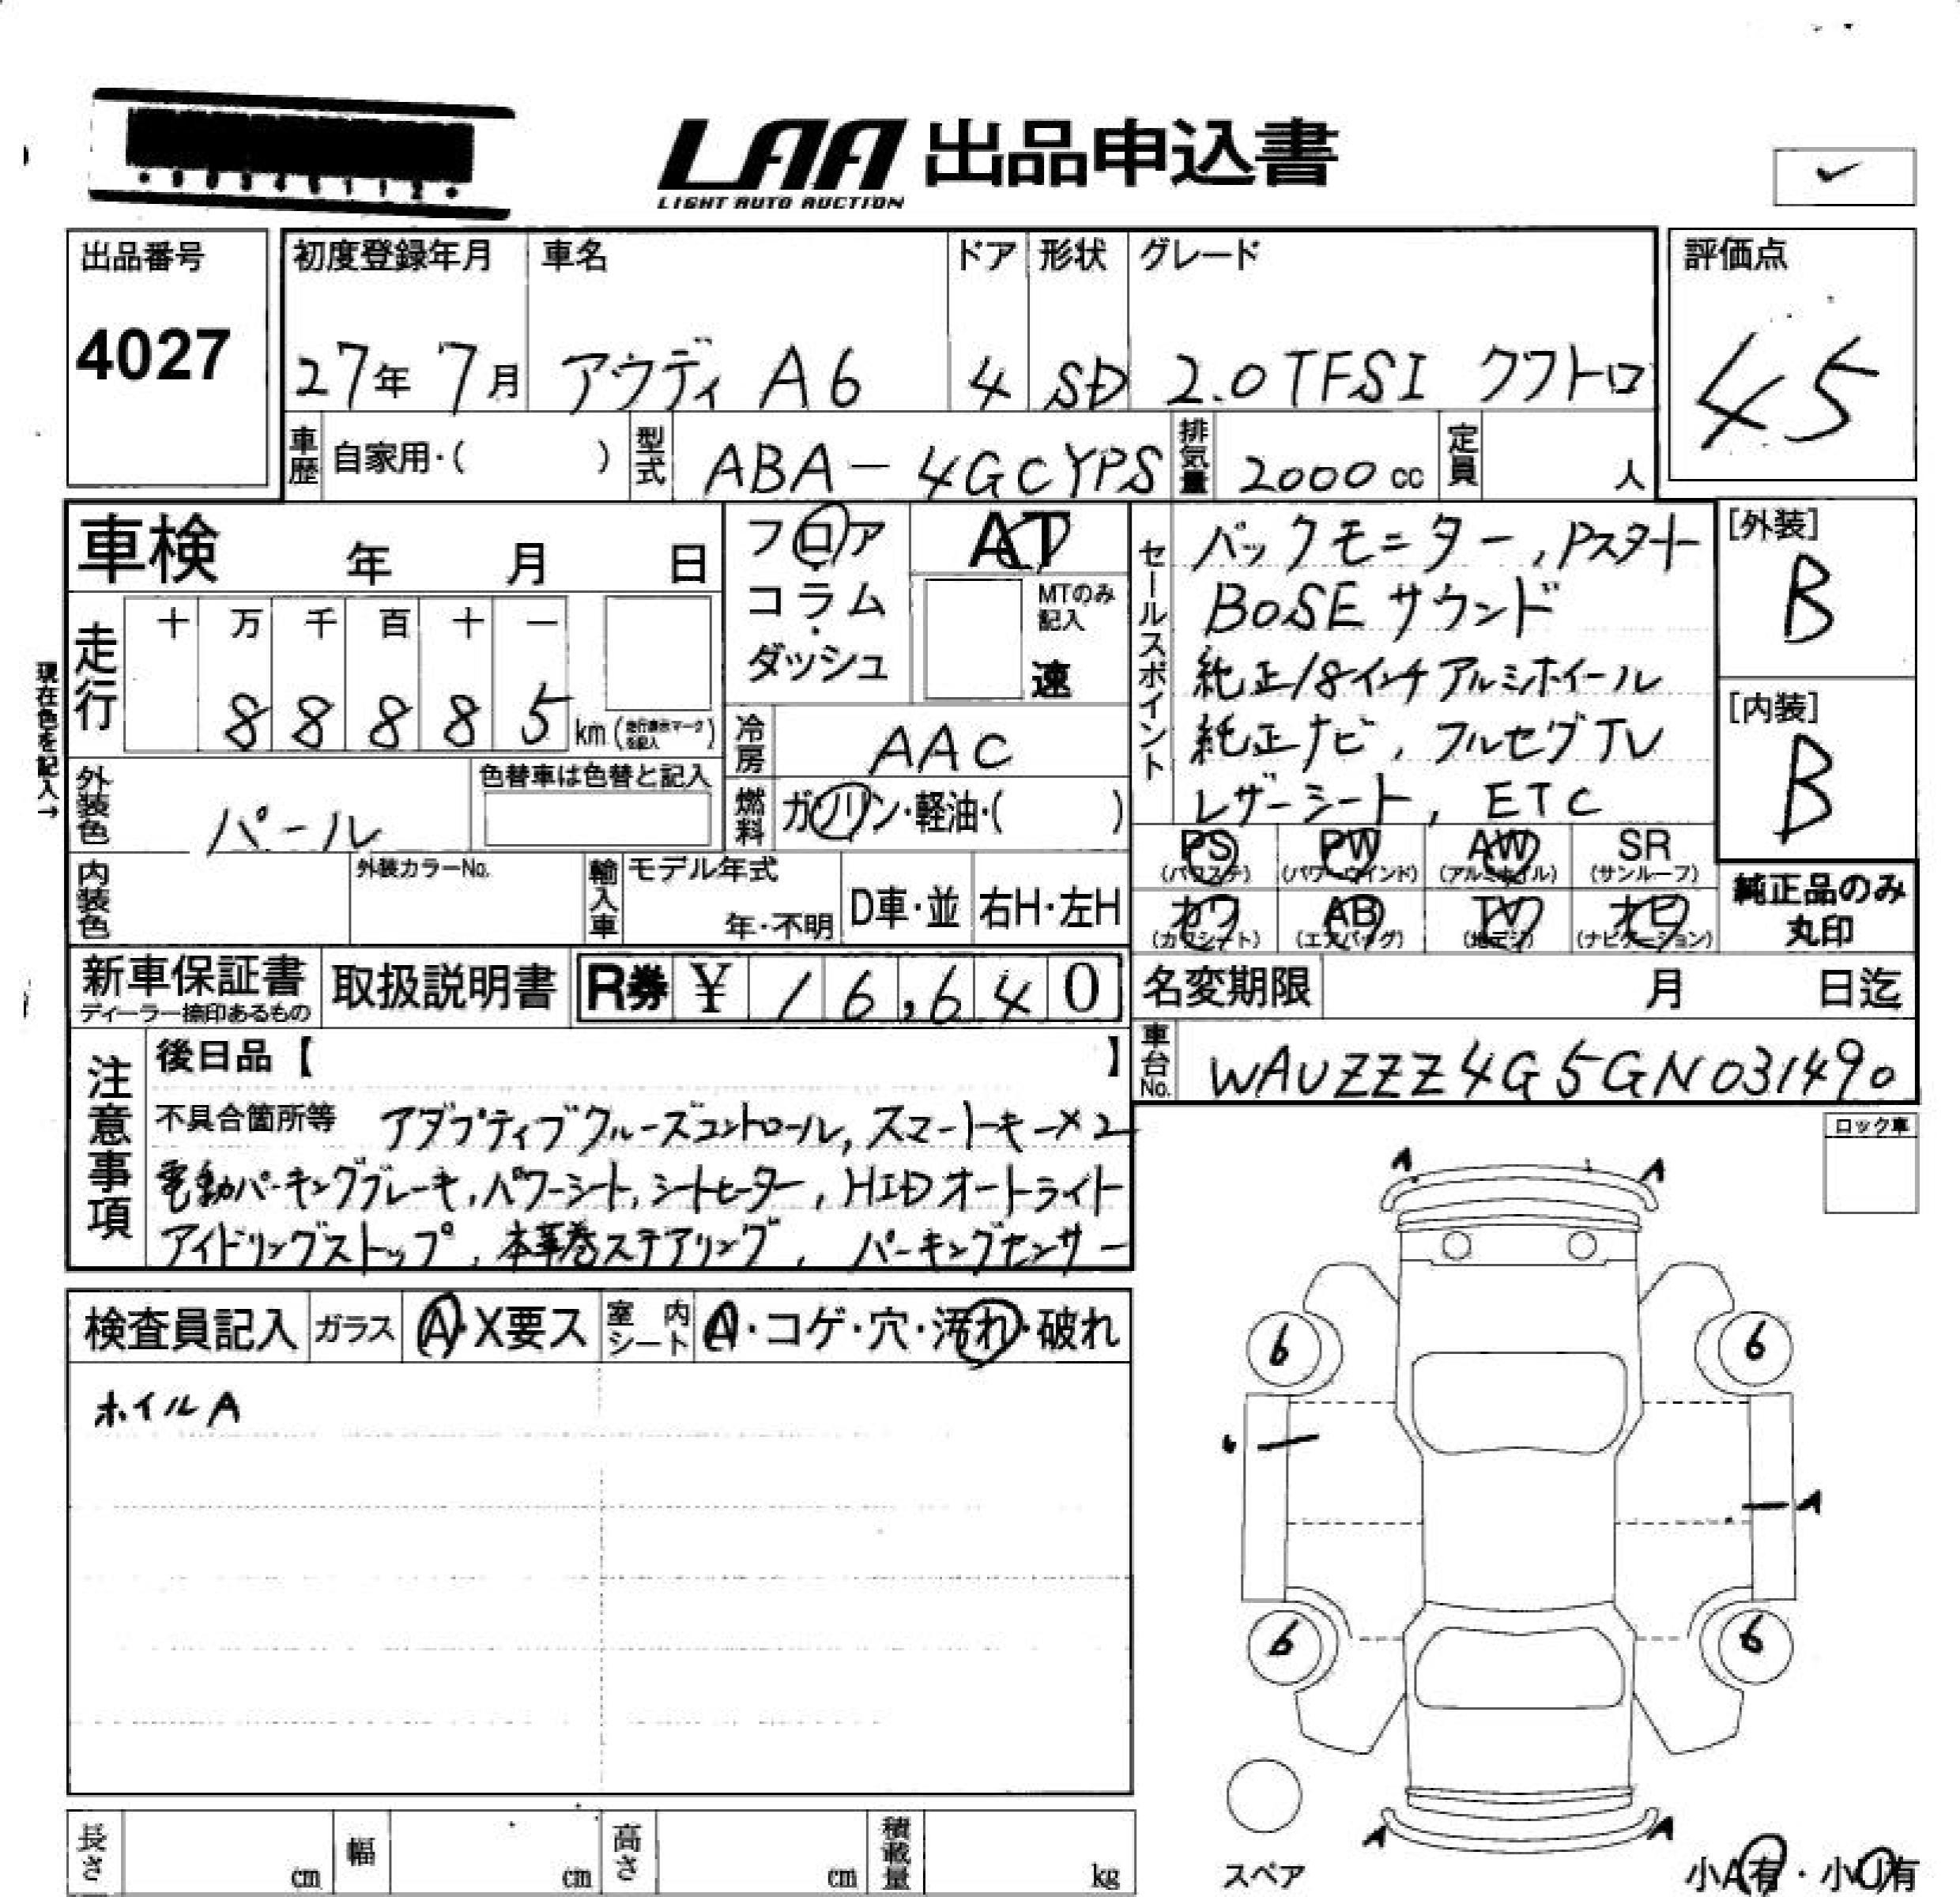 LAA 出品申込書
LIGHT AUTO AUCTION
出品番号
4027
初度登録年月 車名 ドア 形状 グレード
27年 7月 アウディ A6 4 SD 2.0 TFSI クワトロ
評価点
4.5
車歴 自家用・( ) 型式 ABA-4GCYPS 排気量 2000 cc 定員 人
車検 年 月 日
フロア
コラム
ダッシュ
AT
MTのみ記入
速
セールスポイント
バックモニター, Pスタート
BOSEサウンド
純正18インチアルミホイール
純正ナビ, フルセグTV
レザーシート, ETC
[外装]
B
[内装]
B
現在色を記入→
走行 十 万 千 百 十 一
8 8 8 8 5 km (走行表示マークを記入)
冷房 AAC
外装色 パール 色替車は色替と記入
燃料 ガソリン・軽油・( )
PS (パワステ) PW (パワーウインド) AW (アルミホイル) SR (サンルーフ)
カワ (カワシート) AB (エアバッグ) TV (地デジ) ナビ (ナビゲーション)
純正品のみ
丸印
内装色 外装カラーNo. 輸入車 モデル年式 年・不明 D車・並 右H・左H
新車保証書
ディーラー捺印あるもの
取扱説明書 R券 ¥ 16,640
名変期限 月 日迄
車台No. WAUZZZ4G5GN031490
注意事項
後日品【 】
不具合箇所等 アダプティブクルーズコントロール, スマートキー×2
電動パーキングブレーキ, パワーシート, シートヒーター, HIDオートライト
アイドリングストップ, 本革巻ステアリング, パーキングセンサー
ロック車
検査員記入 ガラス A・X要ス 室内シート A・コゲ・穴・汚れ・破れ
ホイルA
A A
6 6
A
6 6
A A
スペア
小A有・小U有
長さ cm 幅 cm 高さ cm 積載量 kg